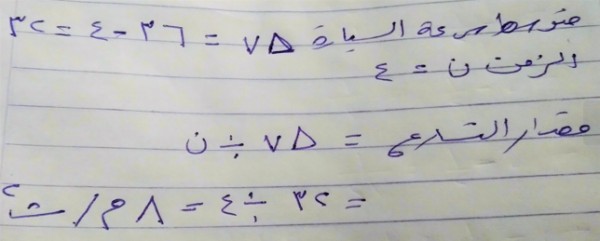 متوسط سرعة السيارة Δ٧ = ٣٦ - ٤ = ٣٢
الزمن ن = ٤
مقدار التسارع = Δ٧ ÷ ن
= ٣٢ ÷ ٤ = ٨ م / ث²